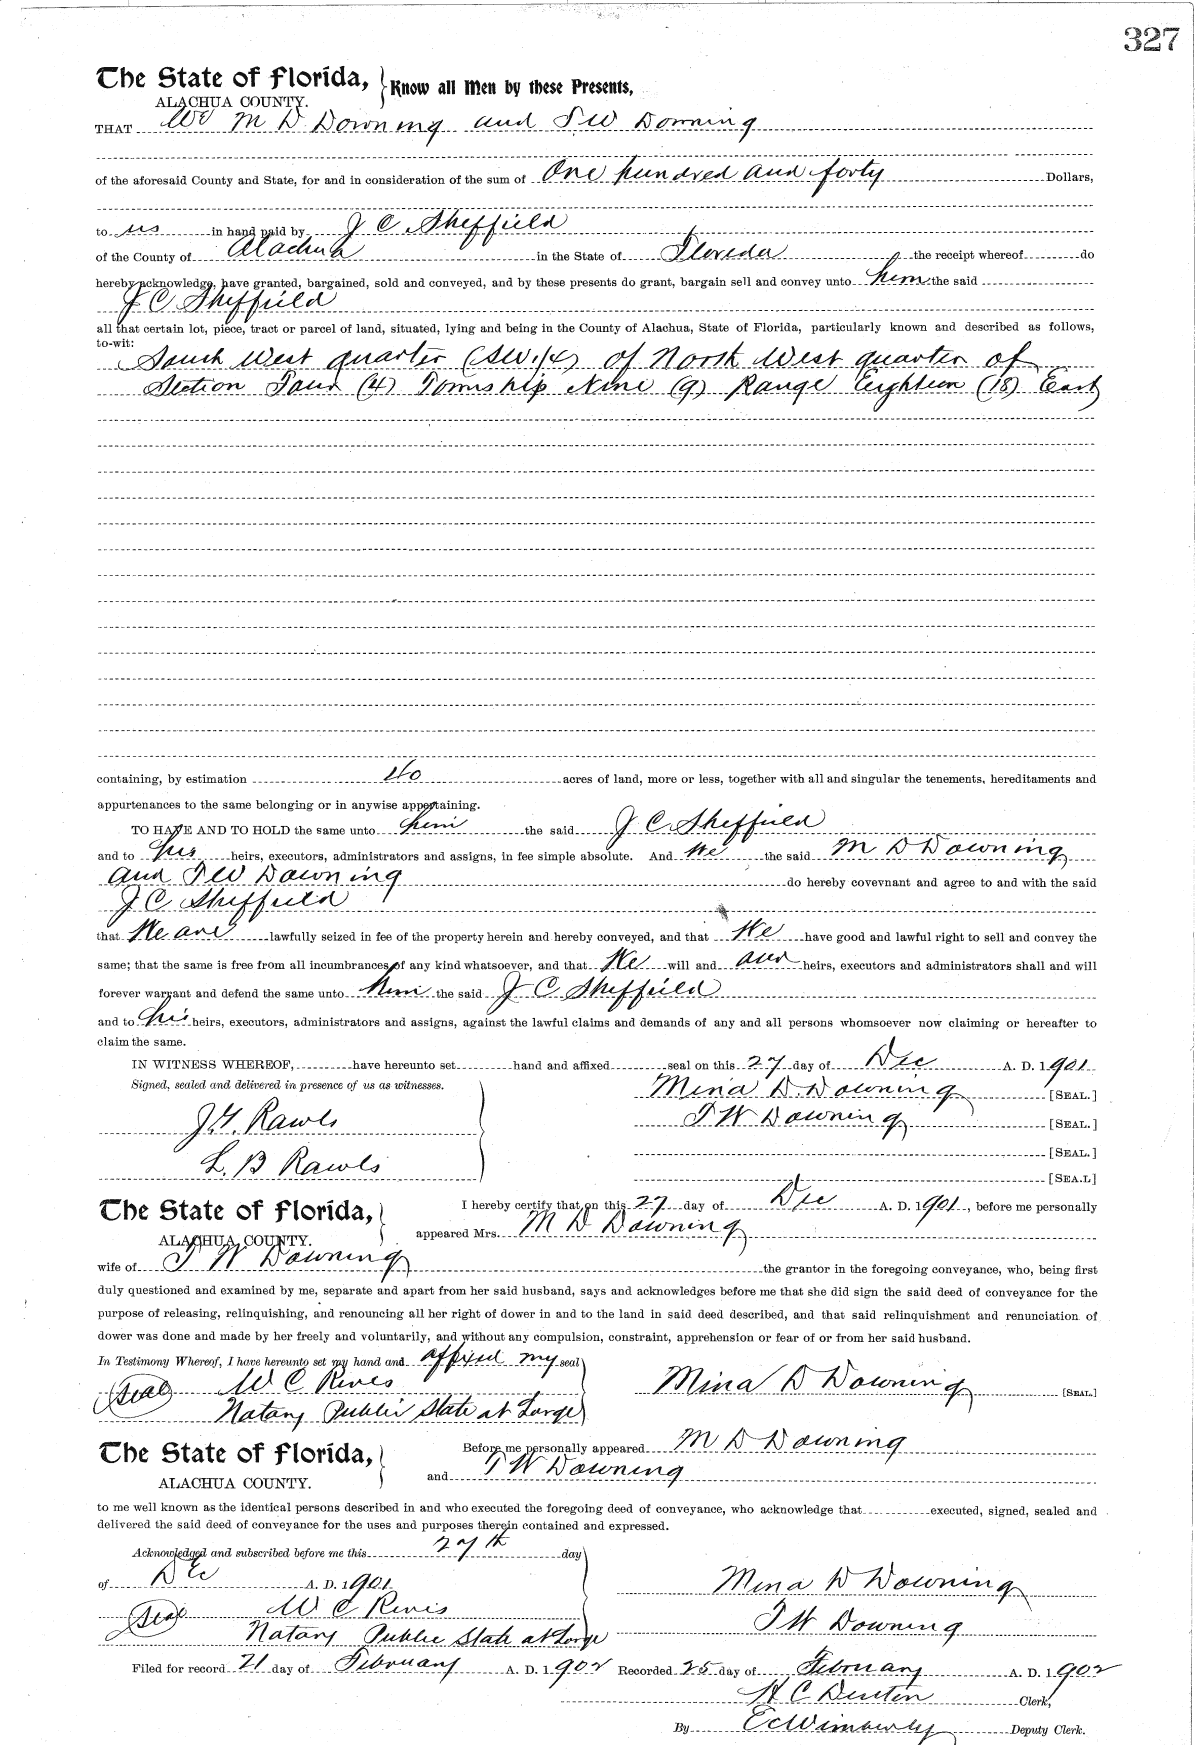 327
The State of Florida, Know all Men by these Presents,
ALACHUA COUNTY.
THAT We M D Downing and T W Downing
of the aforesaid County and State, for and in consideration of the sum of One hundred and forty Dollars,
to us in hand paid by J C Sheffield
of the County of Alachua in the State of Florida the receipt whereof do
hereby acknowledge, have granted, bargained, sold and conveyed, and by these presents do grant, bargain sell and convey unto him the said
J C Sheffield
all that certain lot, piece, tract or parcel of land, situated, lying and being in the County of Alachua, State of Florida, particularly known and described as follows,
to-wit:
South West quarter (SW 1/4) of North West quarter of
Section Four (4) Township Nine (9) Range Eighteen (18) East
containing, by estimation 40 acres of land, more or less, together with all and singular the tenements, hereditaments and
appurtenances to the same belonging or in anywise appertaining.
TO HAVE AND TO HOLD the same unto him the said J C Sheffield
and to his heirs, executors, administrators and assigns, in fee simple absolute. And We the said M D Downing
and T W Downing do hereby covevnant and agree to and with the said
J C Sheffield
that We are lawfully seized in fee of the property herein and hereby conveyed, and that We have good and lawful right to sell and convey the
same; that the same is free from all incumbrances of any kind whatsoever, and that We will and our heirs, executors and administrators shall and will
forever warrant and defend the same unto him the said J C Sheffield
and to his heirs, executors, administrators and assigns, against the lawful claims and demands of any and all persons whomsoever now claiming or hereafter to
claim the same.
IN WITNESS WHEREOF, have hereunto set hand and affixed seal on this 27 day of Dec A. D. 1901
Signed, sealed and delivered in presence of us as witnesses. Mina D. Downing [SEAL.]
J. Rawls T W Downing [SEAL.]
[SEAL.]
L. B Rawls [SEA.L]
The State of Florida, I hereby certify that on this 27 day of Dec A. D. 1901, before me personally
ALACHUA COUNTY. appeared Mrs. M D Downing
wife of T W Downing the grantor in the foregoing conveyance, who, being first
duly questioned and examined by me, separate and apart from her said husband, says and acknowledges before me that she did sign the said deed of conveyance for the
purpose of releasing, relinquishing, and renouncing all her right of dower in and to the land in said deed described, and that said relinquishment and renunciation of
dower was done and made by her freely and voluntarily, and without any compulsion, constraint, apprehension or fear of or from her said husband.
In Testimony Whereof, I have hereunto set my hand and affixed my seal
Seal W C Rives Mina D Downing [SEAL]
Notary Public State at Large
The State of Florida, Before me personally appeared M D Downing
ALACHUA COUNTY. and T W Downing
to me well known as the identical persons described in and who executed the foregoing deed of conveyance, who acknowledge that executed, signed, sealed and
delivered the said deed of conveyance for the uses and purposes therein contained and expressed.
Acknowledged and subscribed before me this 27th day
of Dec A. D. 1901 Mina D Downing
Seal W C Rives T W Downing
Notary Public State at Large
Filed for record 21 day of February A. D. 1902 Recorded 25 day of February A. D. 1902
H C Denton Clerk,
By E C Wimberly Deputy Clerk.